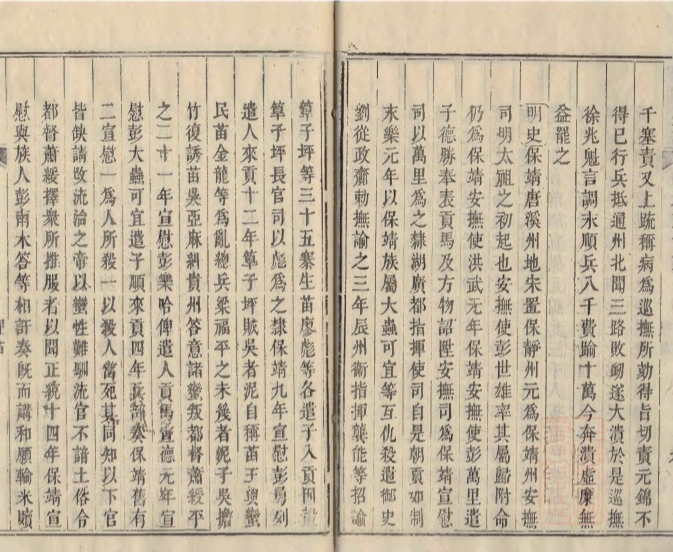 千塞責又上疏稱病爲巡撫所劾得旨切責元錦不
得已行兵抵通州北聞三路敗衂遂大潰於是巡撫
徐兆魁言調永順兵八千費踰十萬今奔潰虛糜無
益罷之
明史保靖唐溪州地宋置保靜州元爲保靖州安撫
司明太祖之初起也安撫使彭世雄率其屬歸附命
仍爲保靖安撫使洪武元年保靖安撫使彭萬里遣
子德勝奉表貢馬及方物詔陞安撫司爲保靖宣慰
司以萬里爲之隸湖廣都指揮使司自是朝貢如制
永樂元年以保靖族屬大蟲可宜等互仇殺遣御史
劉從政齎勅撫諭之三年辰州衛指揮龔能等招諭
筸子坪等三十五寨生苗廖彪等各遣子入貢因設
筸子坪長官司以彪爲之隸保靖九年宣慰彭勇烈
遣人來貢十二年筸子坪賊吳者泥自稱苗王與蠻
民苗金龍等爲亂總兵梁福平之未幾者泥子吳擔
竹復誘苗吳亞麻糾貴州答意諸蠻叛都督蕭綬平
之二十一年宣慰彭藥哈俾遣人貢馬宣德元年宣
慰彭大蟲可宜遣子順來貢四年兵部奏保靖舊有
二宣慰一爲人所殺一以殺人當死其同知以下官
皆缺請改流論之帝以蠻性難馴流官不諳土俗令
都督蕭綬擇衆所推服者以聞正統十四年保靖宣
慰與族人彭南木答等相訐奏既而講和願輸米贖